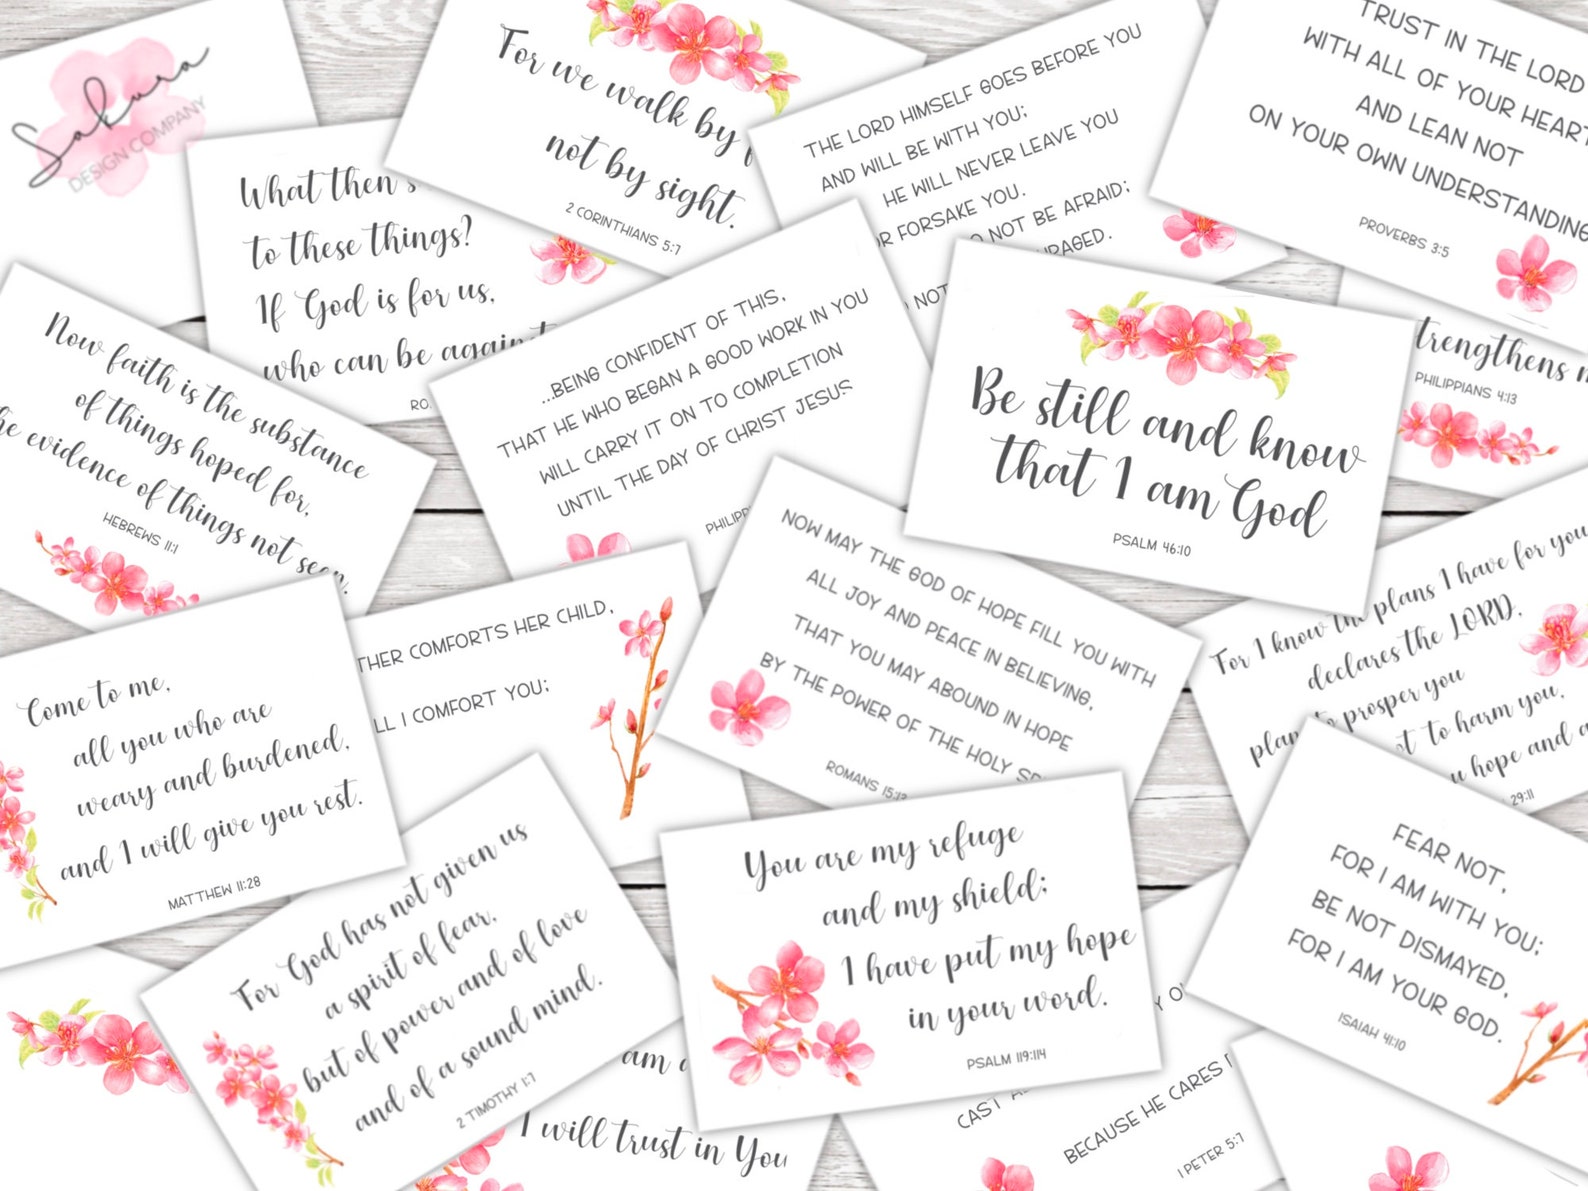 Sakura
DESIGN COMPANY
For we walk by
not by sight.
2 CORINTHIANS 5:7
THE LORD HIMSELF GOES BEFORE YOU
AND WILL BE WITH YOU;
HE WILL NEVER LEAVE YOU
FORSAKE YOU.
NOT BE AFRAID;
TRUST IN THE LORD
WITH ALL OF YOUR HEART
AND LEAN NOT
ON YOUR OWN UNDERSTANDING
PROVERBS 3:5
What then
to these things?
If God is for us,
who can be
Now faith is the substance
of things hoped for,
evidence of things not seen.
HEBREWS 11:1
...BEING CONFIDENT OF THIS,
THAT HE WHO BEGAN A GOOD WORK IN YOU
WILL CARRY IT ON TO COMPLETION
UNTIL THE DAY OF CHRIST JESUS
Be still and know
that I am God
PSALM 46:10
PHILIPPIANS 4:13
COMFORTS HER CHILD,
I COMFORT YOU;
NOW MAY THE GOD OF HOPE FILL YOU WITH
ALL JOY AND PEACE IN BELIEVING,
THAT YOU MAY ABOUND IN HOPE
BY THE POWER OF THE HOLY
ROMANS 15:13
For I know the plans I have for you
declares the LORD,
to prosper you
to harm you,
hope and
29:11
Come to me,
all you who are
weary and burdened,
and I will give you rest.
MATTHEW 11:28
For God has not given us
a spirit of fear,
but of power and of love
and of a sound mind.
2 TIMOTHY 1:7
You are my refuge
and my shield;
I have put my hope
in your word.
PSALM 119:114
FEAR NOT,
FOR I AM WITH YOU;
BE NOT DISMAYED,
FOR I AM YOUR GOD.
ISAIAH 41:10
am
I will trust in You
CAST
BECAUSE HE CARES
1 PETER 5:7